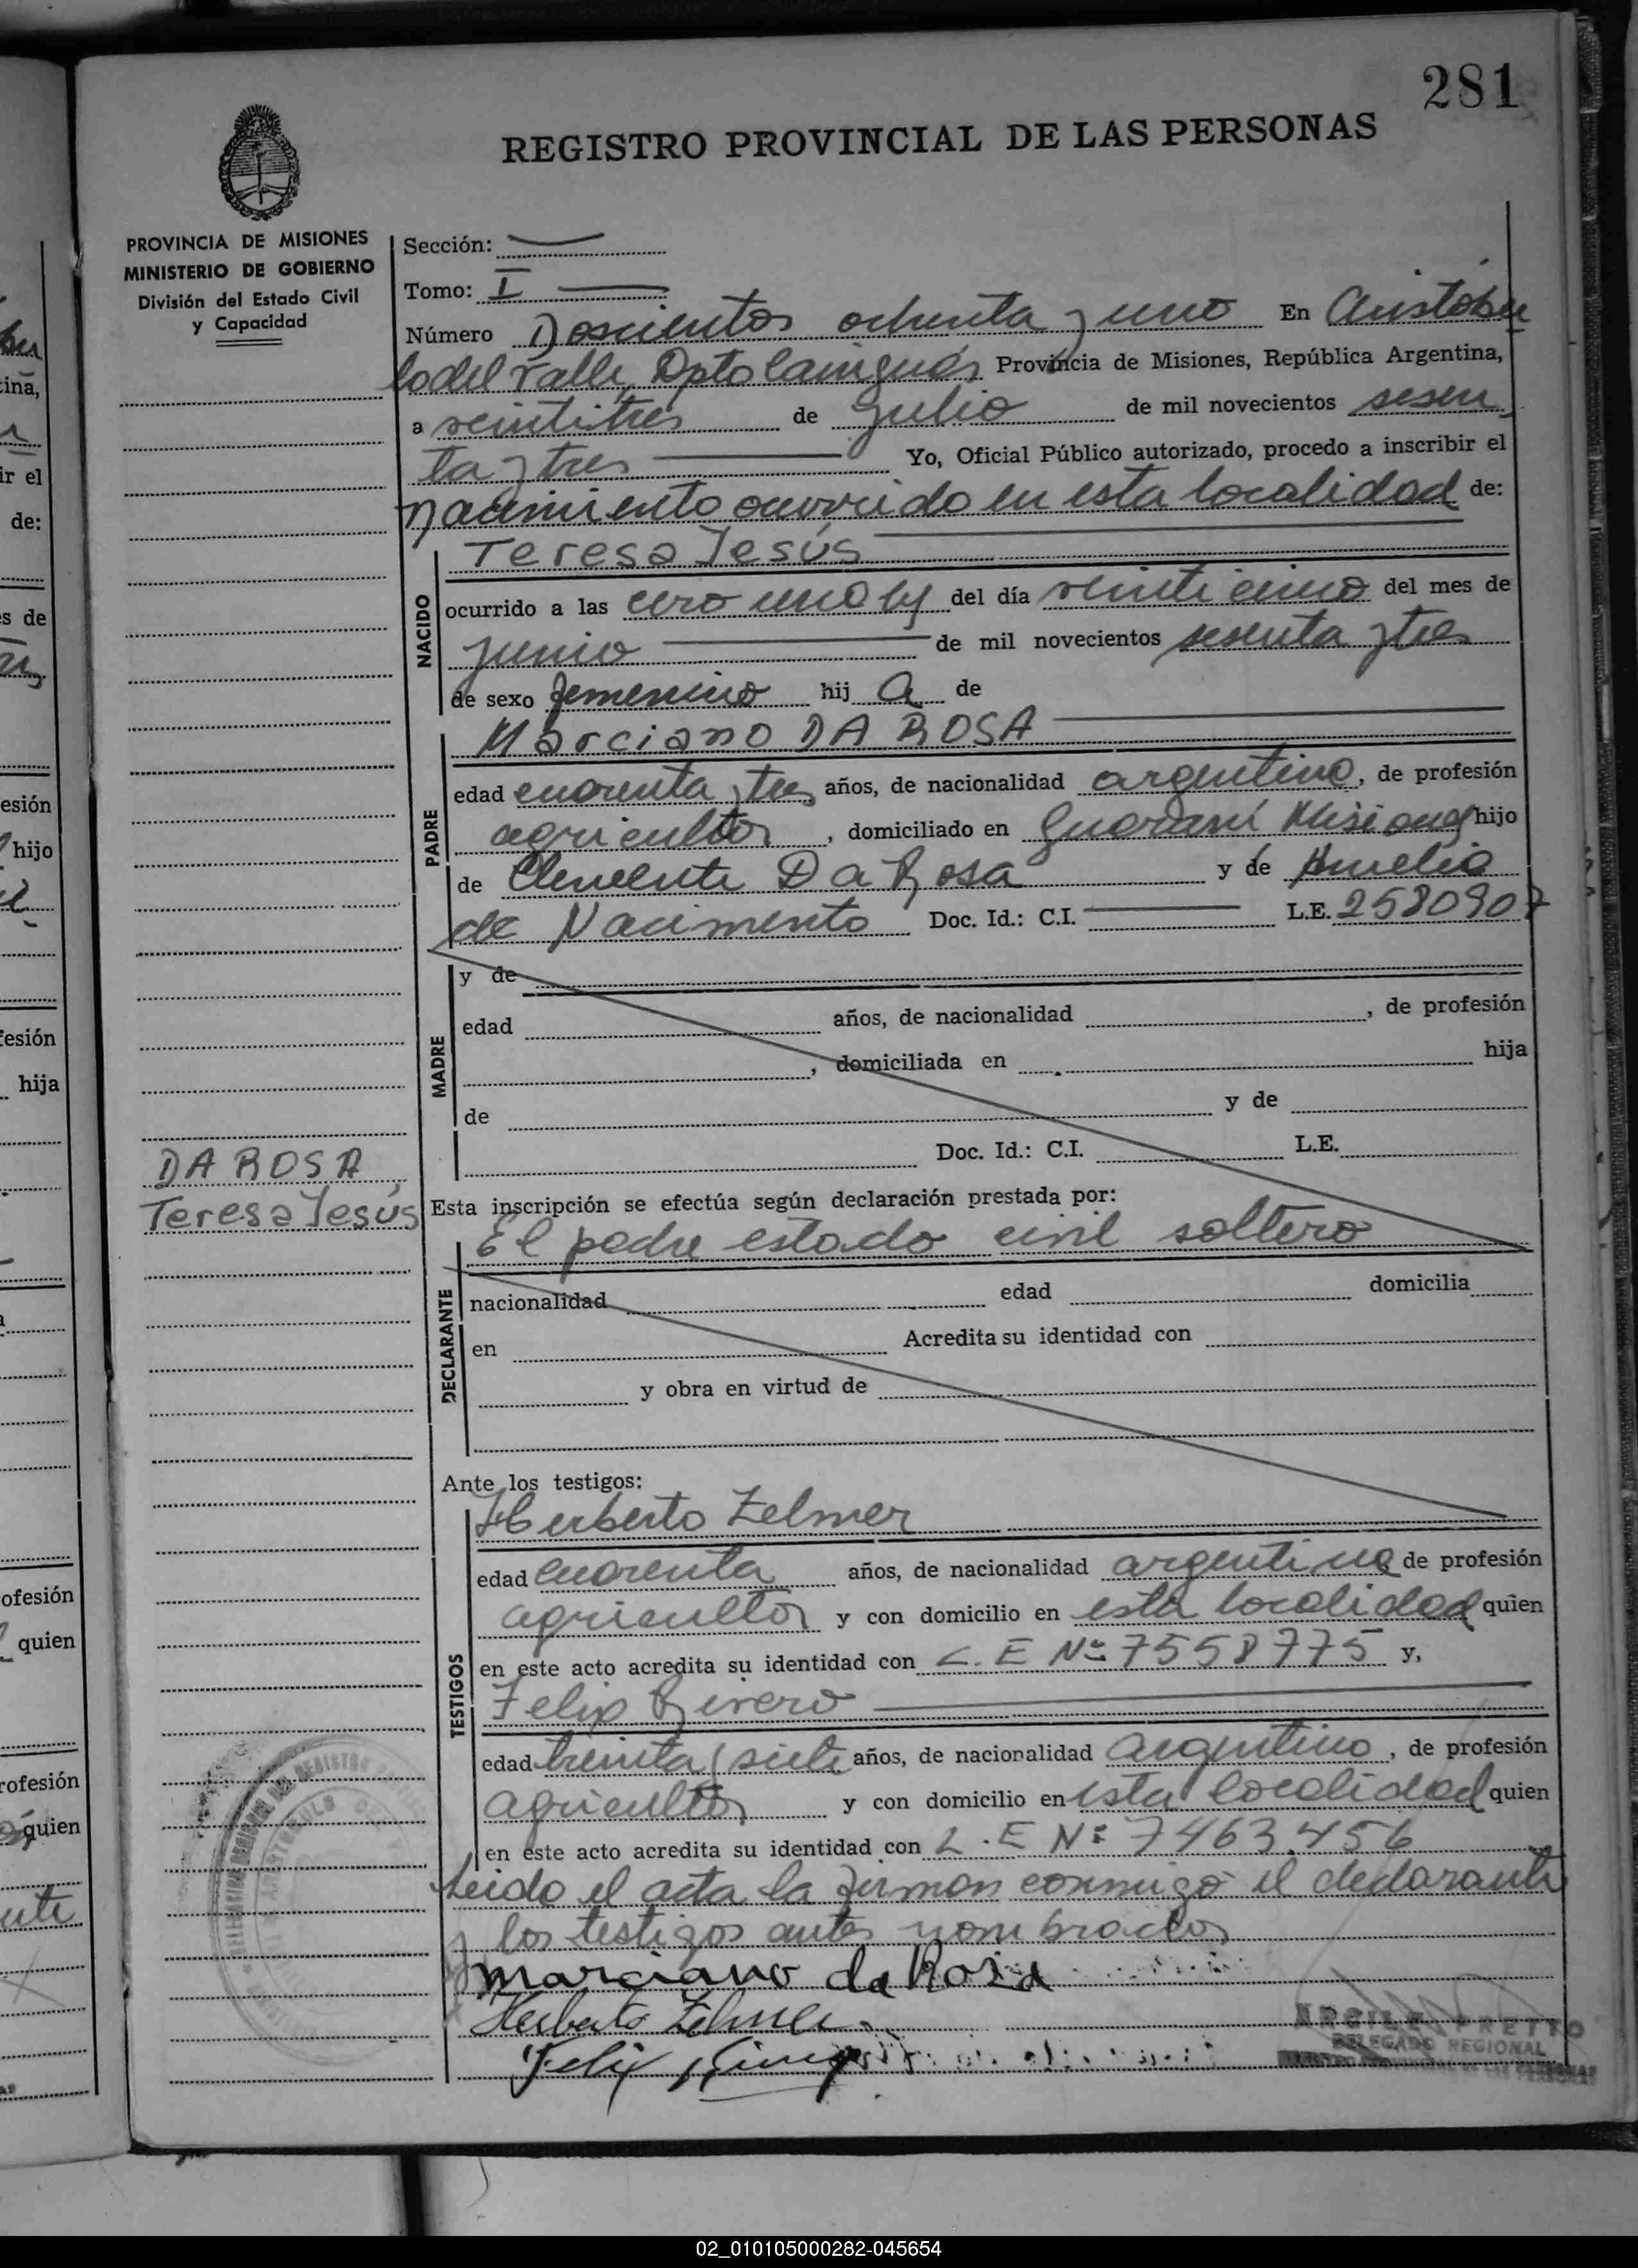 281
REGISTRO PROVINCIAL DE LAS PERSONAS
PROVINCIA DE MISIONES
MINISTERIO DE GOBIERNO
División del Estado Civil
y Capacidad
Sección:
Tomo: I
Número Doscientos ochenta y uno En Aristóbu
lo del Valle, Dpto Cainguás Provincia de Misiones, República Argentina,
a veintitres de julio de mil novecientos sesen
ta y tres Yo, Oficial Público autorizado, procedo a inscribir el
nacimiento ocurrido en esta localidad de:
NACIDO
Teresa Jesús
ocurrido a las cero uno hs del día veinticinco del mes de
junio de mil novecientos sesenta y tres
de sexo femenino hij a de
PADRE
Marciano DA ROSA
edad cuarenta y tres años, de nacionalidad argentino, de profesión
agricultor, domiciliado en Guaraní Misiones hijo
de Clemente Da Rosa y de Amelia
de Nacimento Doc. Id.: C.I. L.E. 2580907
MADRE
y de
edad años, de nacionalidad , de profesión
, domiciliada en hija
de y de
Doc. Id.: C.I. L.E.
DA ROSA
Teresa Jesús
Esta inscripción se efectúa según declaración prestada por:
El padre estado civil soltero
DECLARANTE
nacionalidad edad domicilia
en Acredita su identidad con
y obra en virtud de
Ante los testigos:
TESTIGOS
Herberto Zelmer
edad cuarenta años, de nacionalidad argentino de profesión
agricultor y con domicilio en esta localidad quien
en este acto acredita su identidad con L.E Nº 7558775 y,
Felix Rivero
edad treinta y siete años, de nacionalidad argentino, de profesión
agricultor y con domicilio en esta localidad quien
en este acto acredita su identidad con L.E Nº 7463.456
Leido el acta la firman conmigo el declarante
y los testigos antes nombrados
marciano da Rosa
Herberto Zelmer
Felix
DELEGADO REGIONAL
02_010105000282-045654